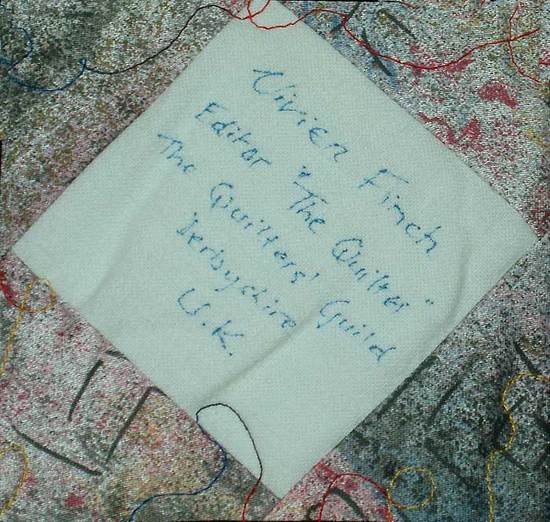 Vivien Finch
Editor "The Quilter"
The Quilters' Guild
Derbyshire
U.K.